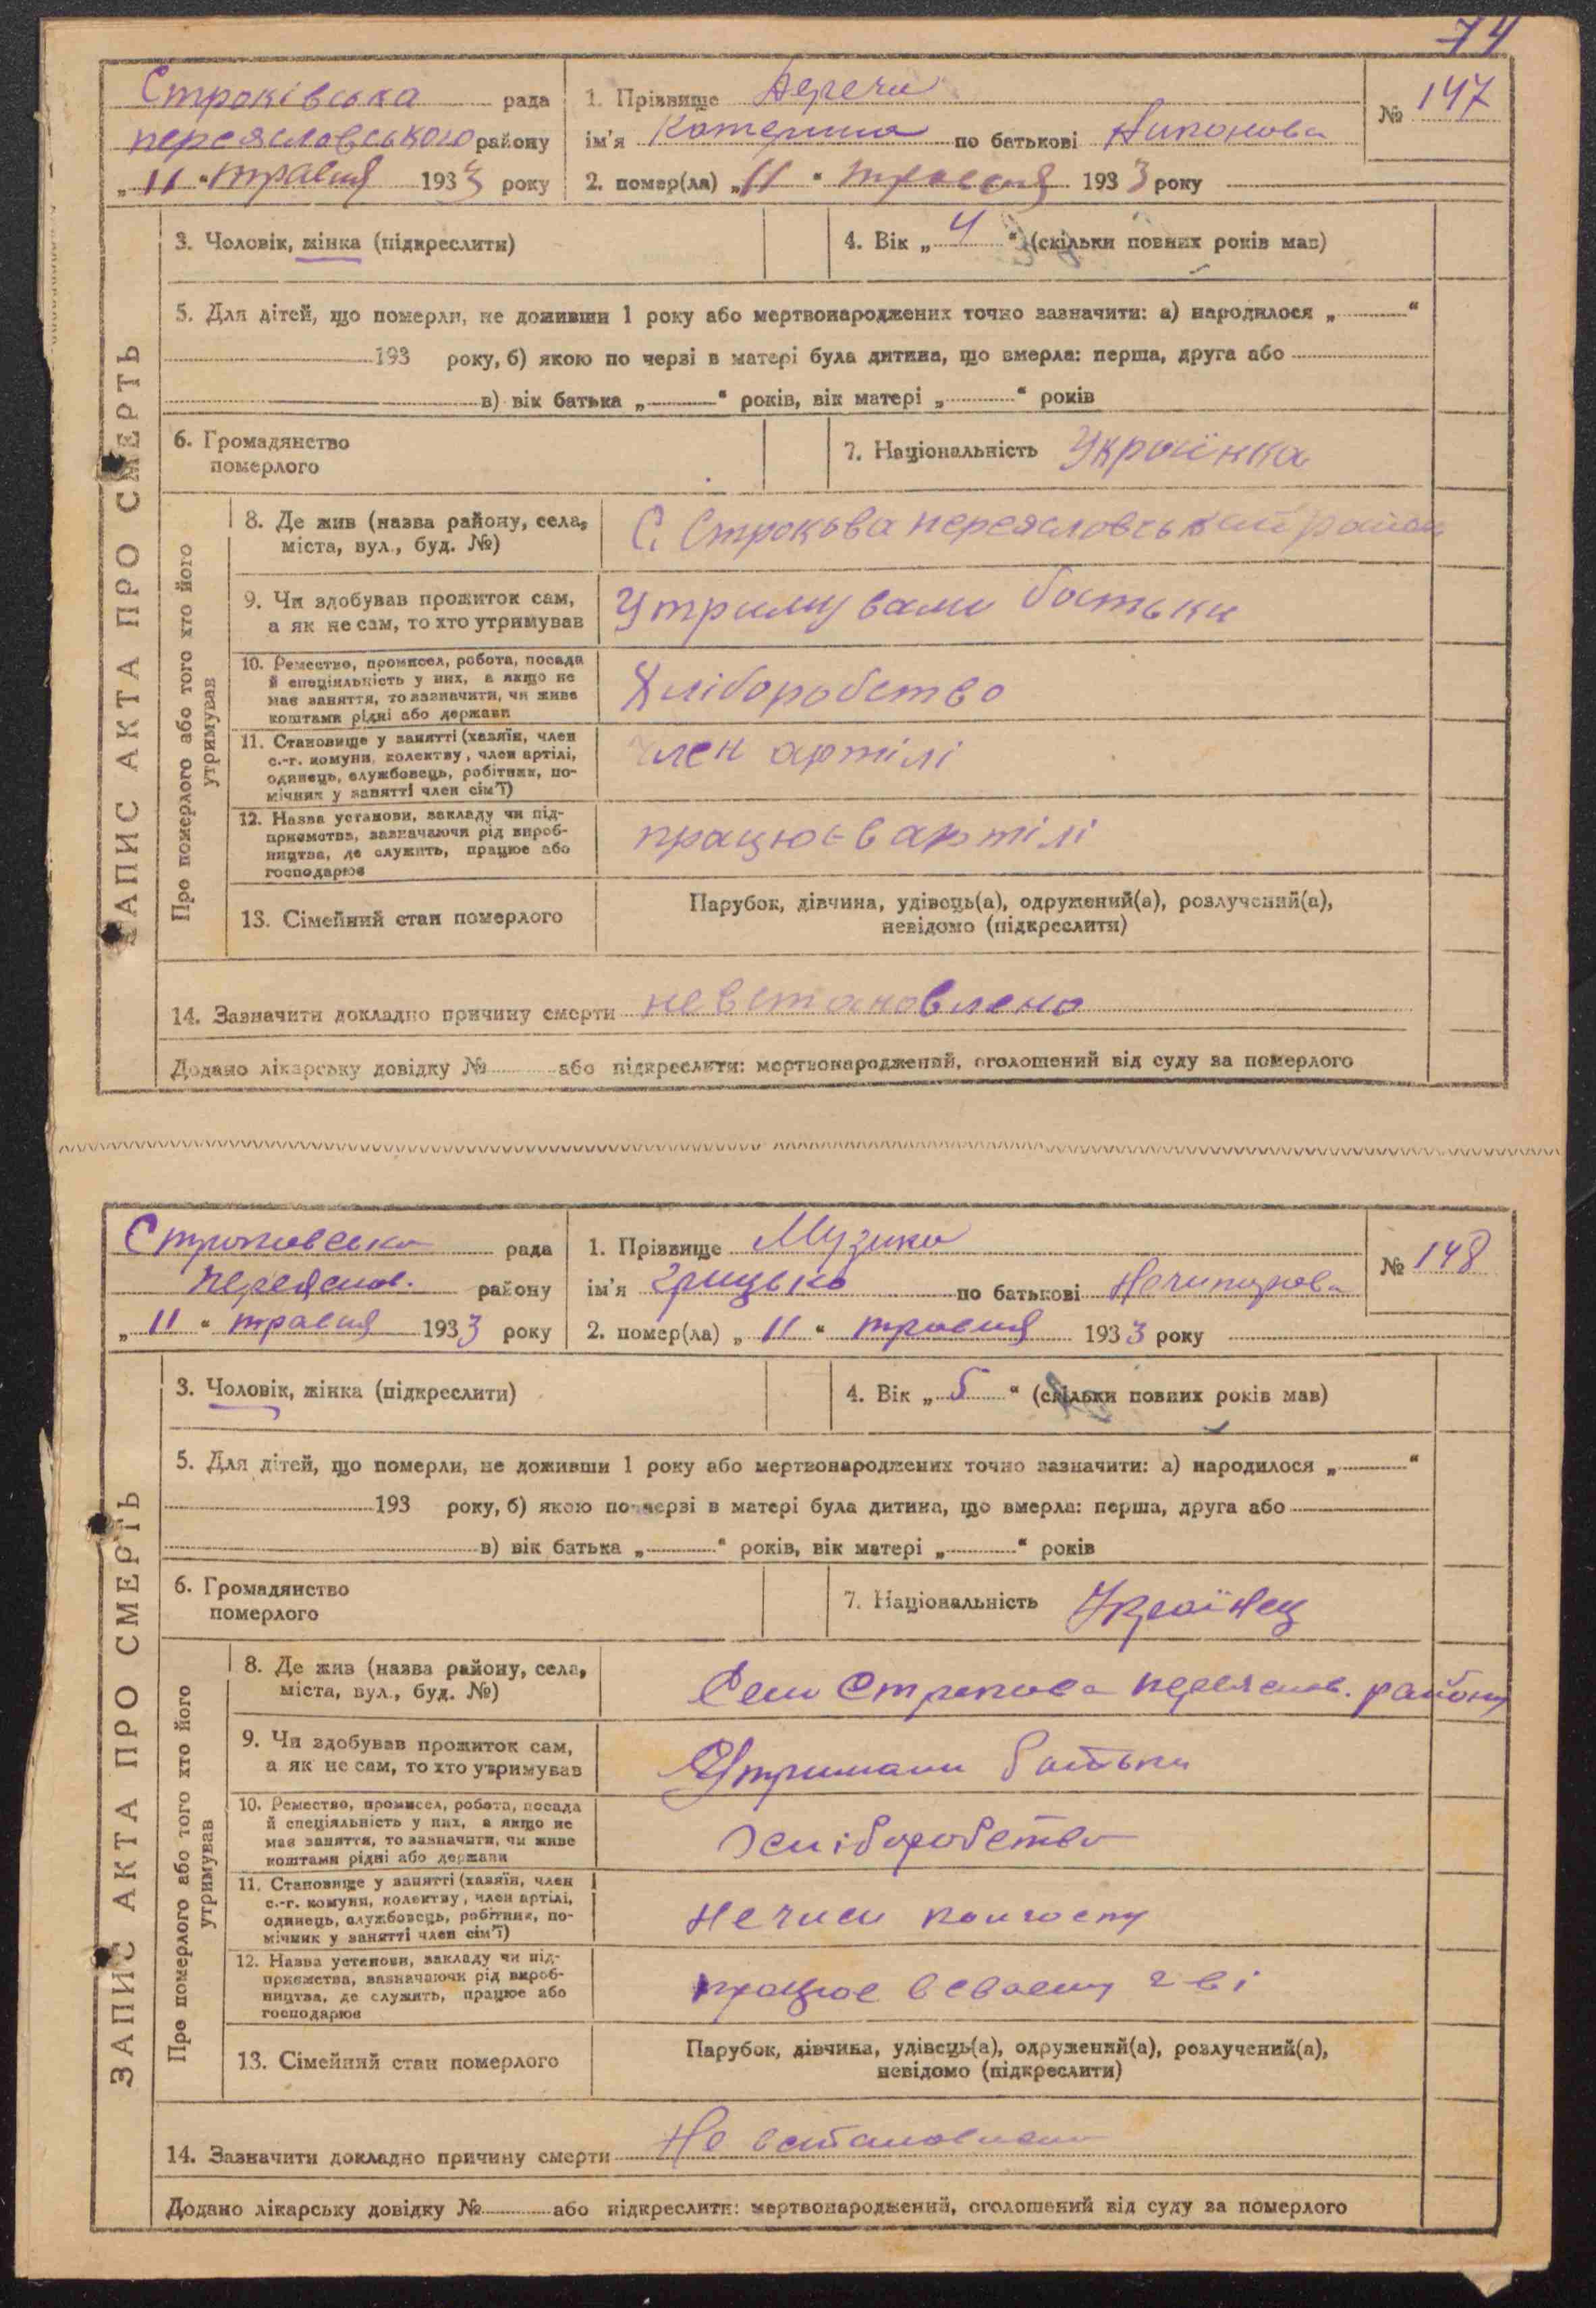 74
Строківська рада
1. Прізвище Дереча
№ 147
переясловського району
ім'я Катерина по батькові Никонова
„ 11 " травня 1933 року
2. помер(ла) „ 11 " травня 1933 року
3. Чоловік, жінка (підкреслити)
4. Вік „ 4 " (скільки повних років мав)
5. Для дітей, що померли, не доживши 1 року або мертвонароджених точно зазначити: а) народилося „ "
193 року, б) якою по черзі в матері була дитина, що вмерла: перша, друга або
в) вік батька „ " років, вік матері „ " років
6. Громадянство
померлого
7. Національність Українка
ЗАПИС АКТА ПРО СМЕРТЬ
Про померлого або того хто його
утримував
8. Де жив (назва району, села,
міста, вул., буд. №)
С. Строкова переясловський район
9. Чи здобував прожиток сам,
а як не сам, то хто утримував
Утримували батьки
10. Ремество, промисел, робота, посада
й спеціяльність у них, а якщо не
має заняття, то зазначити, чи живе
коштами рідні або держави
Хліборобство
11. Становище у занятті (хазяїн, член
с.-г. комуни, колектву, член артілі,
одинець, службовець, робітник, по-
мічник у занятті член сім'ї)
член артілі
12. Назва установи, закладу чи під-
приємства, зазначаючи рід вироб-
ництва, де служить, працює або
господарює
працює в артілі
13. Сімейний стан померлого
Парубок, дівчина, удівець(а), одружений(а), розлучений(а),
невідомо (підкреслити)
14. Зазначити докладно причину смерти невстановлено
Додано лікарську довідку № або підкреслити: мертвонароджений, оголошений від суду за померлого
Строковська рада
1. Прізвище Музика
№ 148
Переяслов. району
ім'я Грицько по батькові Нечипорова
„ 11 " травня 1933 року
2. помер(ла) „ 11 " травня 1933 року
3. Чоловік, жінка (підкреслити)
4. Вік „ 5 " (скільки повних років мав)
5. Для дітей, що померли, не доживши 1 року або мертвонароджених точно зазначити: а) народилося „ "
193 року, б) якою по черзі в матері була дитина, що вмерла: перша, друга або
в) вік батька „ " років, вік матері „ " років
6. Громадянство
померлого
7. Національність Українец
ЗАПИС АКТА ПРО СМЕРТЬ
Про померлого або того хто його
утримував
8. Де жив (назва району, села,
міста, вул., буд. №)
Село Строкова переяслов. району
9. Чи здобував прожиток сам,
а як не сам, то хто утримував
Утримали батьки
10. Ремество, промисел, робота, посада
й спеціяльність у них, а якщо не
має заняття, то зазначити, чи живе
коштами рідні або держави
Хліборобство
11. Становище у занятті (хазяїн, член
с.-г. комуни, колектву, член артілі,
одинець, службовець, робітник, по-
мічник у занятті член сім'ї)
Не член колгоспу
12. Назва установи, закладу чи під-
приємства, зазначаючи рід вироб-
ництва, де служить, працює або
господарює
працює в своєму г-ві
13. Сімейний стан померлого
Парубок, дівчина, удівець(а), одружений(а), розлучений(а),
невідомо (підкреслити)
14. Зазначити докладно причину смерти Не встановлено
Додано лікарську довідку № або підкреслити: мертвонароджений, оголошений від суду за померлого